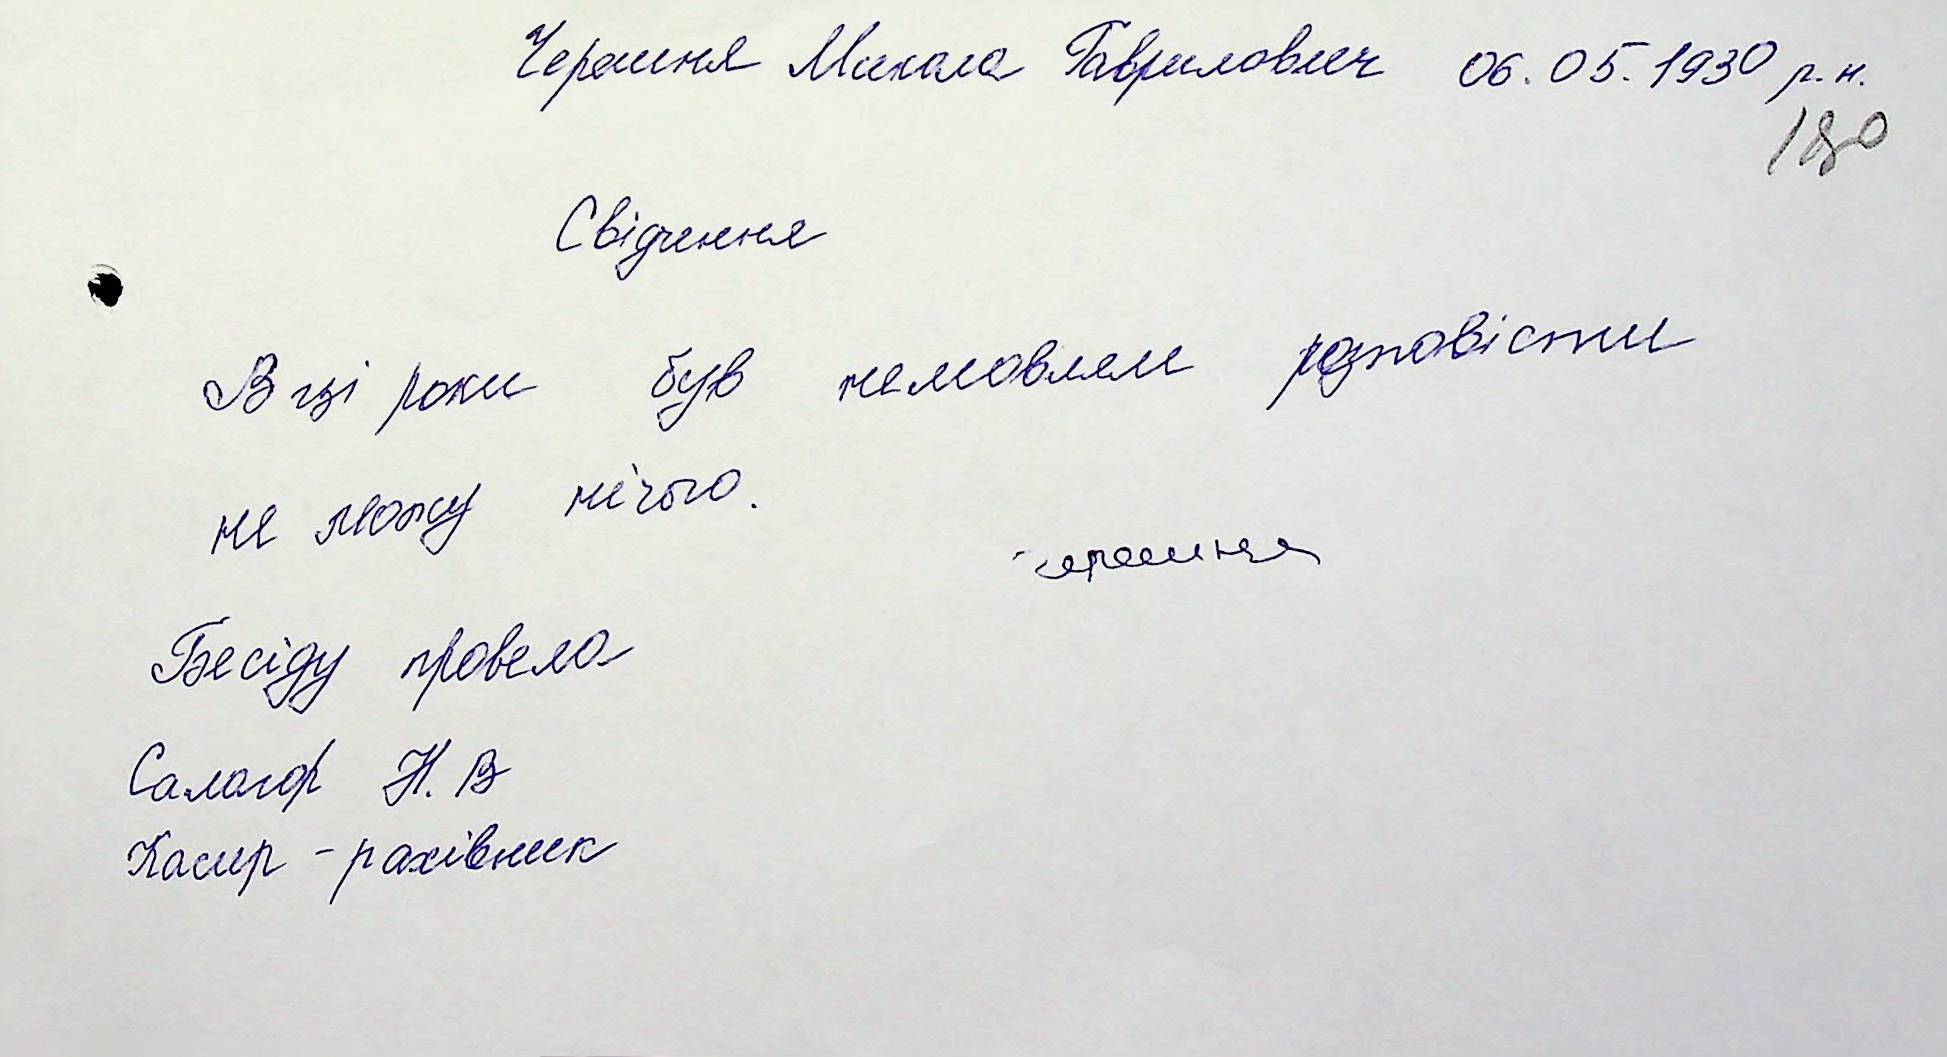 Черешня Микола Гаврилович 06.05.1930 р.н.
180
Свідчення
В ці роки був немовлям розповісти
не можу нічого.
Черешня
Бесіду провела
Салогор Н.В
Касир - рахівник